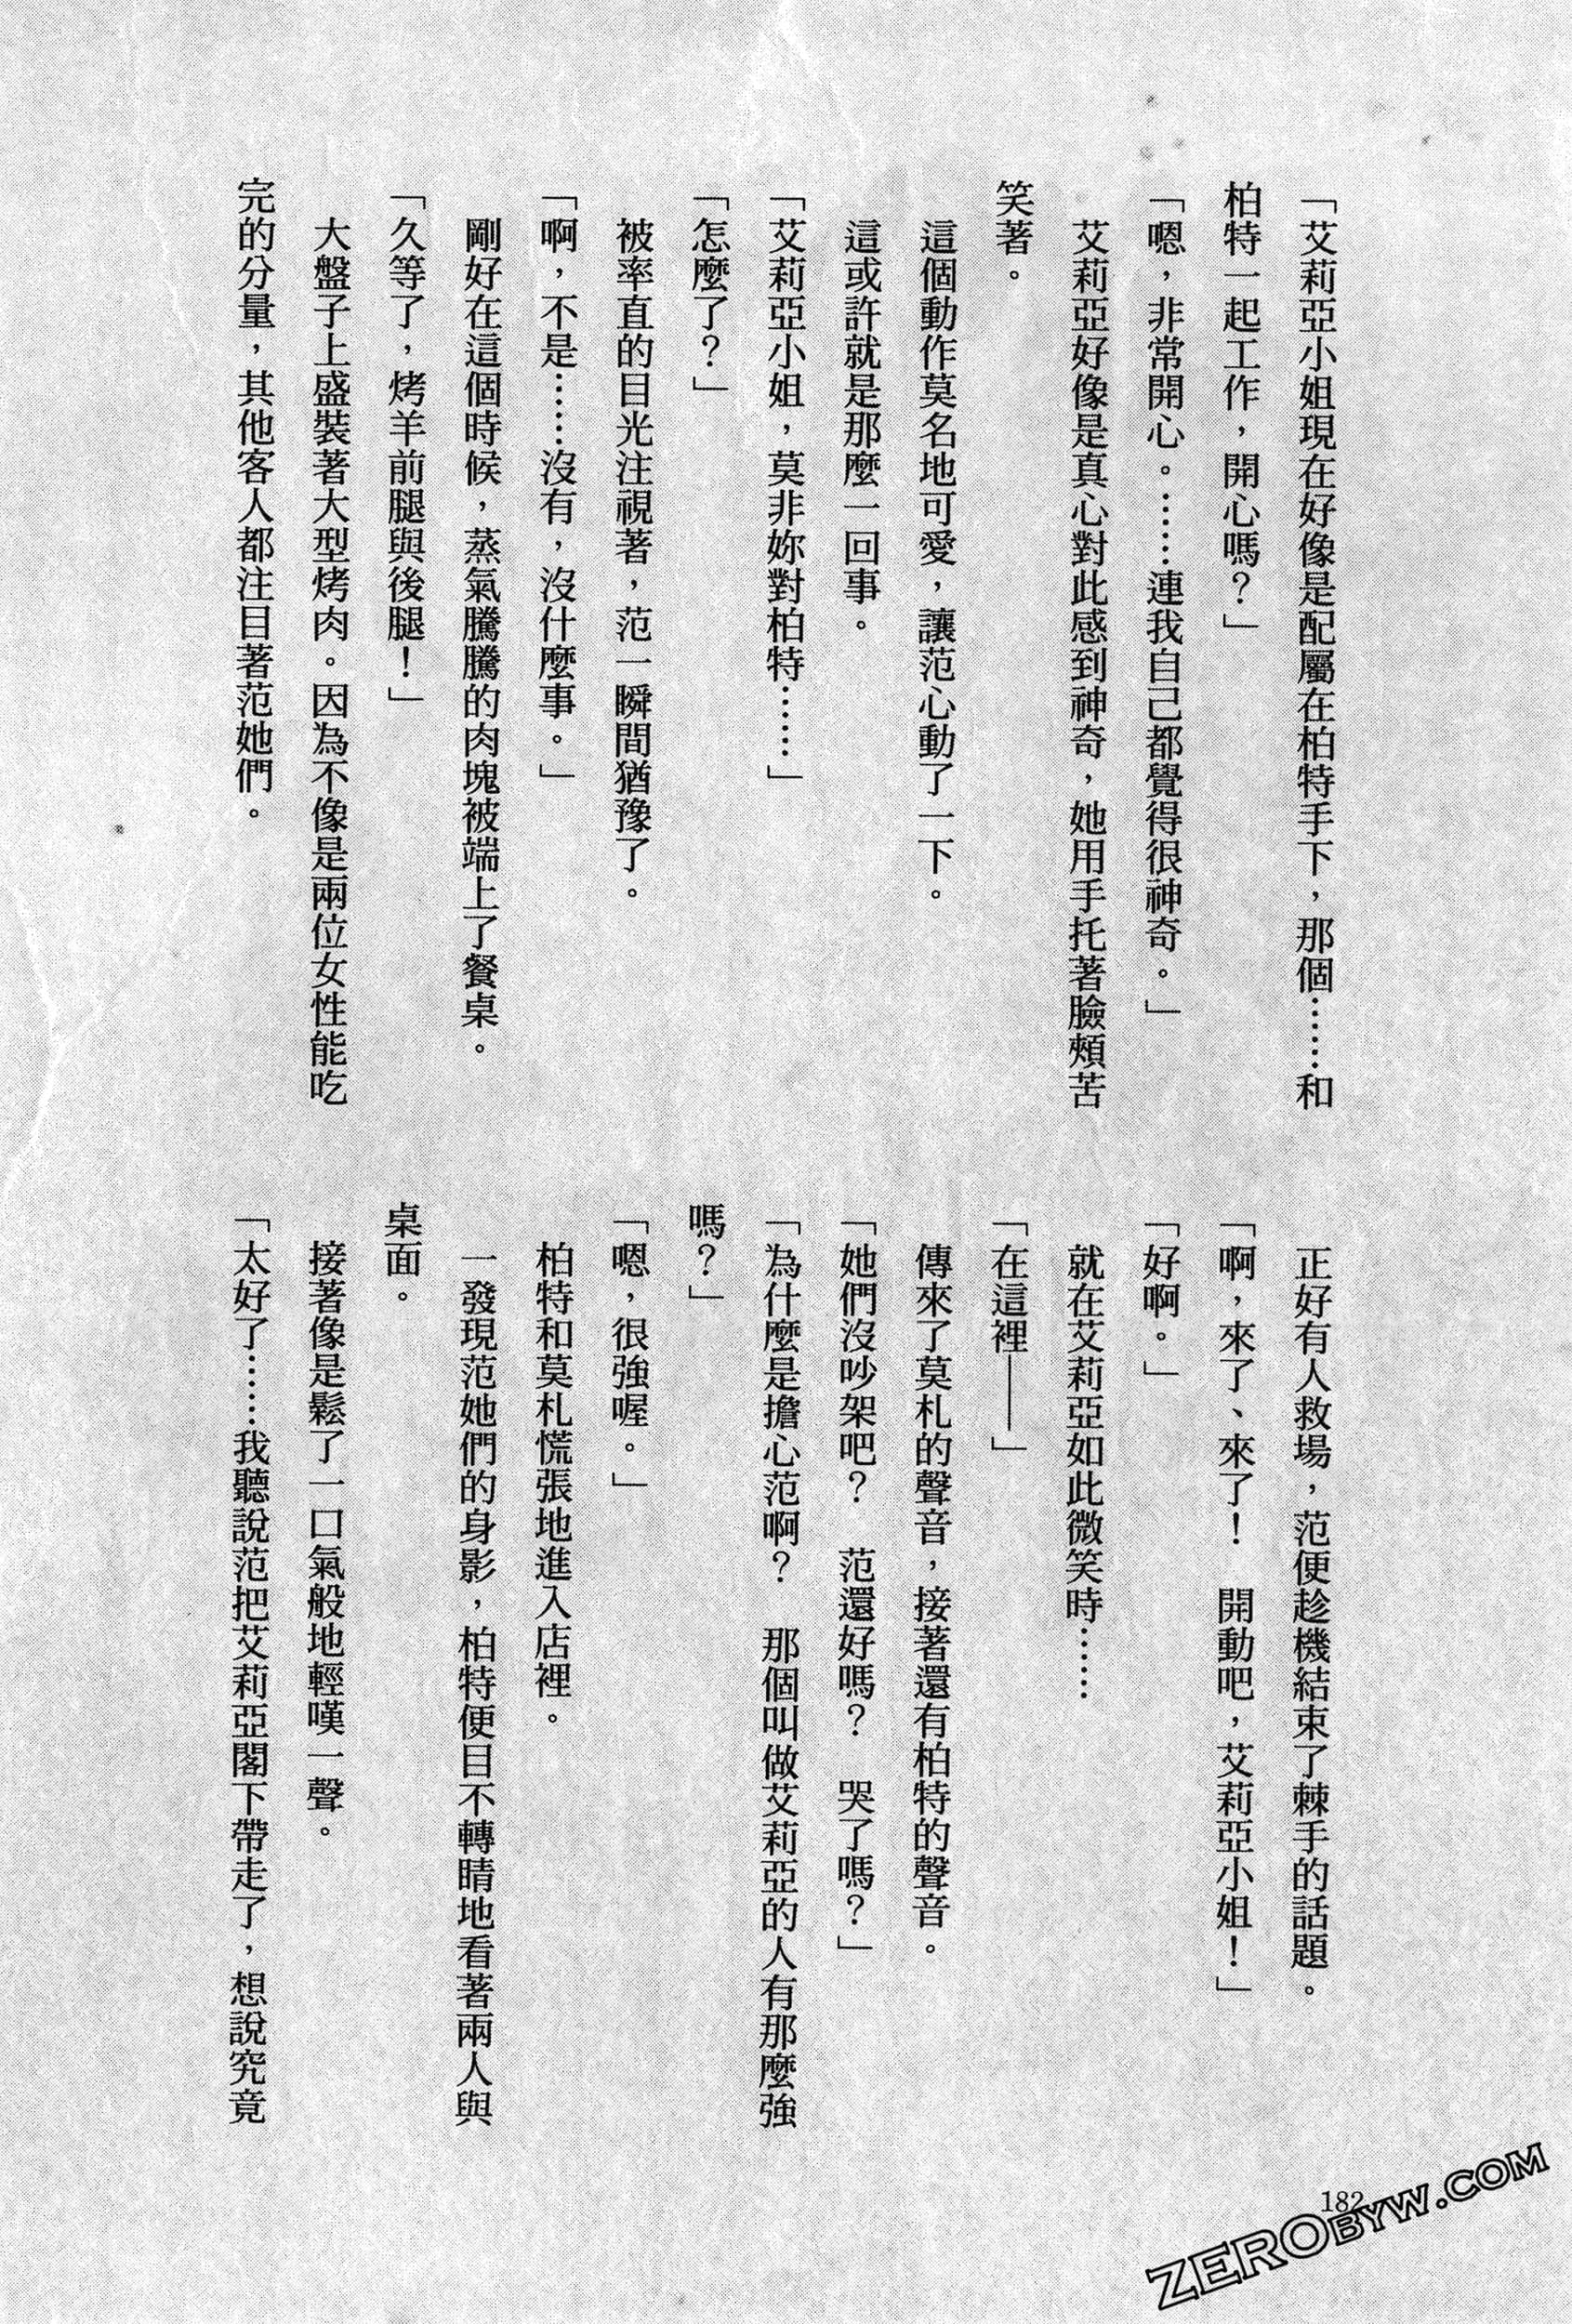 「艾莉亞小姐現在好像是配屬在柏特手下，那個……和
柏特一起工作，開心嗎？」
「嗯，非常開心。……連我自己都覺得很神奇。」
艾莉亞好像是真心對此感到神奇，她用手托著臉頰苦
笑著。
這個動作莫名地可愛，讓范心動了一下。
這或許就是那麼一回事。
「艾莉亞小姐，莫非妳對柏特……」
「怎麼了？」
被率直的目光注視著，范一瞬間猶豫了。
「啊，不是……沒有，沒什麼事。」
剛好在這個時候，蒸氣騰騰的肉塊被端上了餐桌。
「久等了，烤羊前腿與後腿！」
大盤子上盛裝著大型烤肉。因為不像是兩位女性能吃
完的分量，其他客人都注目著范她們。
正好有人救場，范便趁機結束了棘手的話題。
「啊，來了、來了！　開動吧，艾莉亞小姐！」
「好啊。」
就在艾莉亞如此微笑時……
「在這裡——」
傳來了莫札的聲音，接著還有柏特的聲音。
「她們沒吵架吧？　范還好嗎？　哭了嗎？」
「為什麼是擔心范啊？　那個叫做艾莉亞的人有那麼強
嗎？」
「嗯，很強喔。」
柏特和莫札慌張地進入店裡。
一發現范她們的身影，柏特便目不轉睛地看著兩人與
桌面。
接著像是鬆了一口氣般地輕嘆一聲。
「太好了……我聽說范把艾莉亞閣下帶走了，想說究竟
182
ZEROBYW.COM